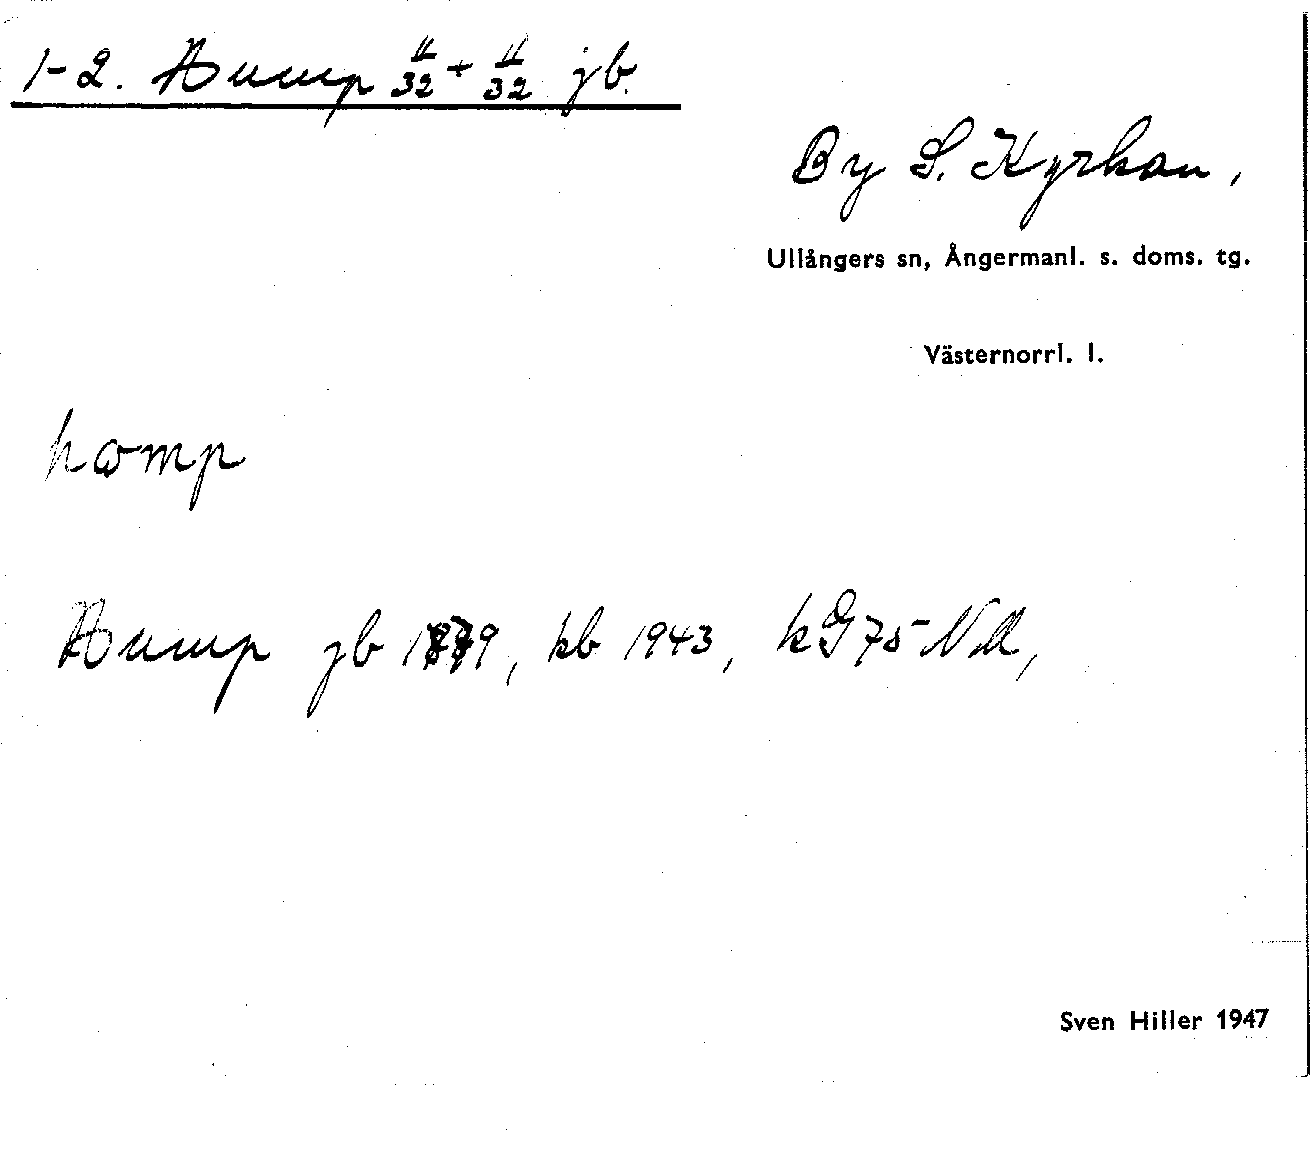 1-2. Hump 11/32 + 11/32 jb.
By S. Kyrkan,
Ullångers sn, Ångermanl. s. doms. tg.
Västernorrl. l.
hɷmp
Hump jb 1879, kb 1943, kG75 NM,
Sven Hiller 1947